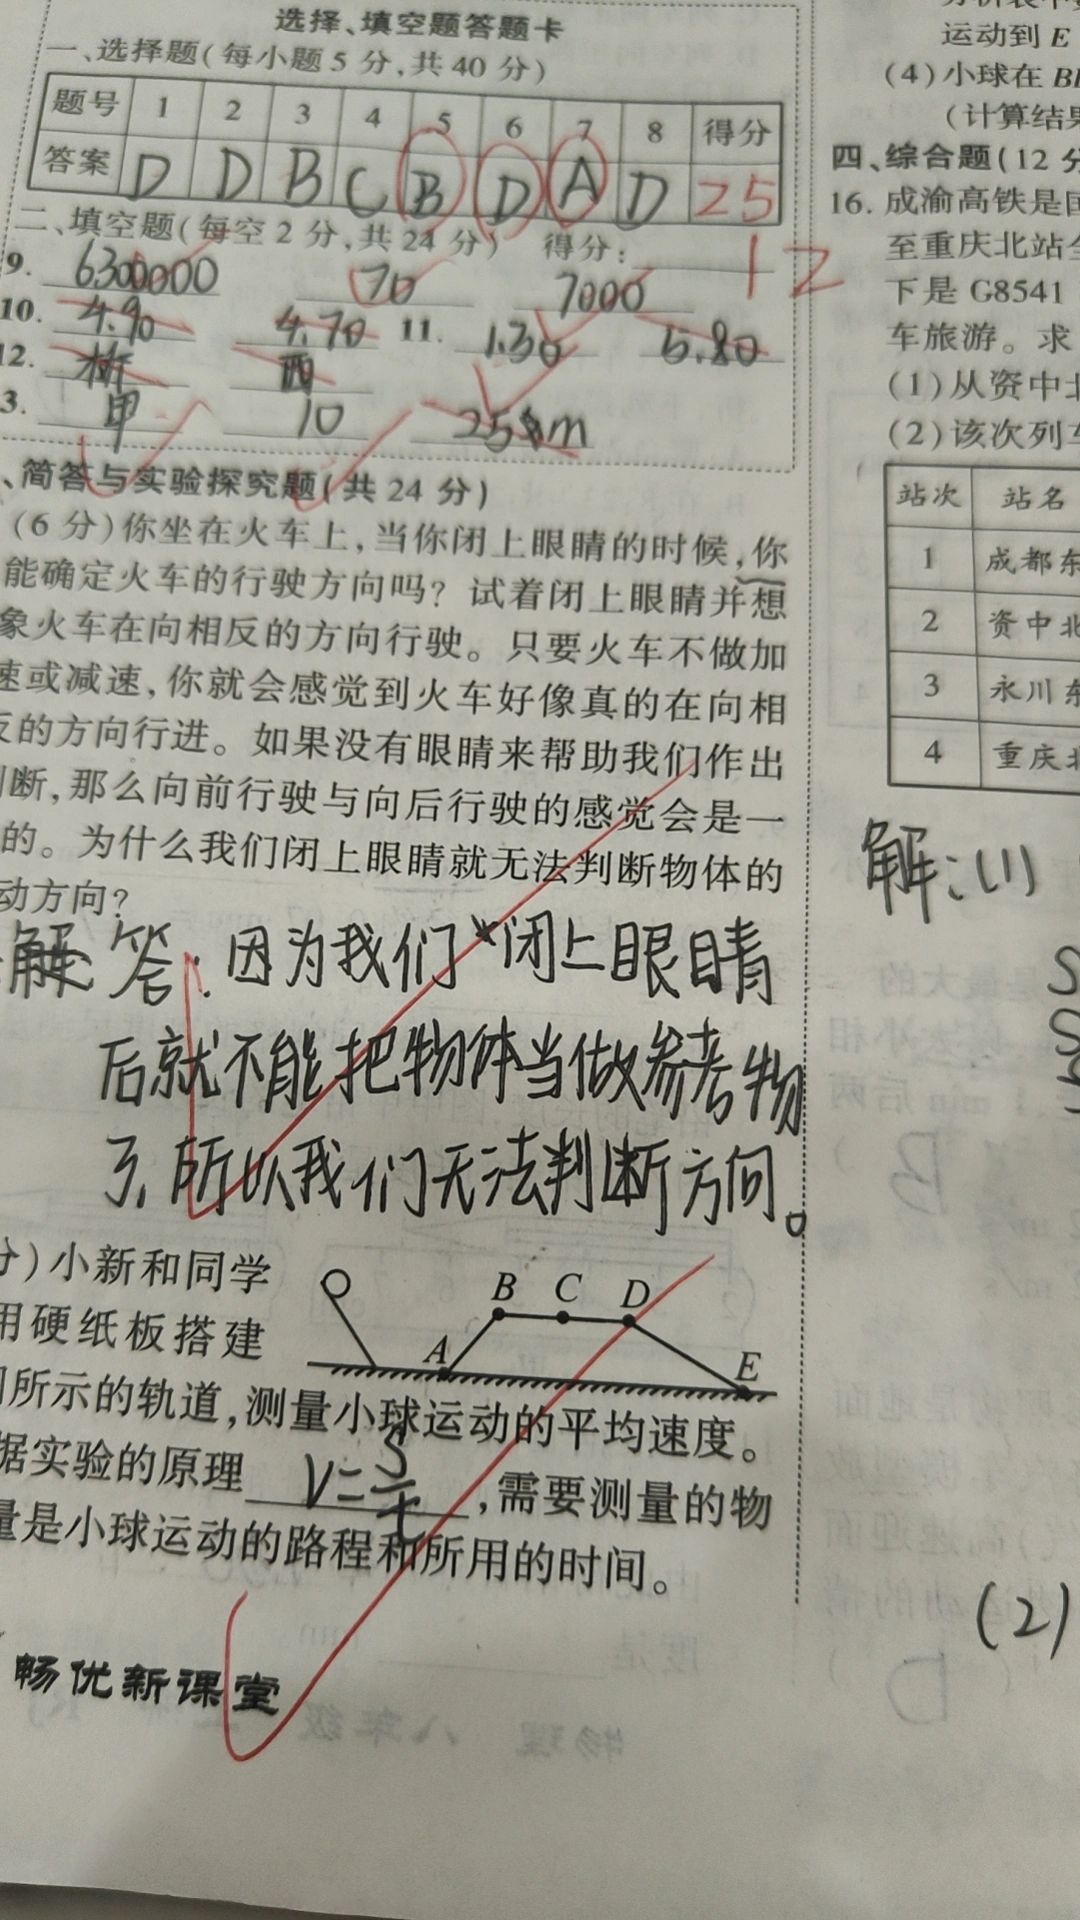 选择、填空题答题卡
一、选择题(每小题5分,共40分)
题号 1 2 3 4 5 6 7 8 得分
答案 D D B C B D A D 25
二、填空题(每空2分,共24分) 得分: 12
9. 6300000 70 7000
10. 4.90 4.70 11. 1.30 5.80
12. 桥 西
3. 甲 10 25
、简答与实验探究题(共24分)
(6分)你坐在火车上,当你闭上眼睛的时候,你
能确定火车的行驶方向吗?试着闭上眼睛并想
象火车在向相反的方向行驶。只要火车不做加
速或减速,你就会感觉到火车好像真的在向相
反的方向行进。如果没有眼睛来帮助我们作出
断,那么向前行驶与向后行驶的感觉会是一
的。为什么我们闭上眼睛就无法判断物体的
动方向?
解 答:因为我们闭上眼睛
后就不能把物体当做参考物
了,所以我们无法判断方向。
分)小新和同学
用硬纸板搭建
所示的轨道,测量小球运动的平均速度。
A B C D E
据实验的原理 V=S/t ,需要测量的物
量是小球运动的路程和所用的时间。
畅优新课堂
运动到E
(4)小球在B
(计算结果
四、综合题(12分
16. 成渝高铁是国
至重庆北站全
下是G8541
车旅游。求
(1)从资中北
(2)该次列车
站次 站名
1 成都东
2 资中北
3 永川东
4 重庆北
解:(1)
S
S
(2)